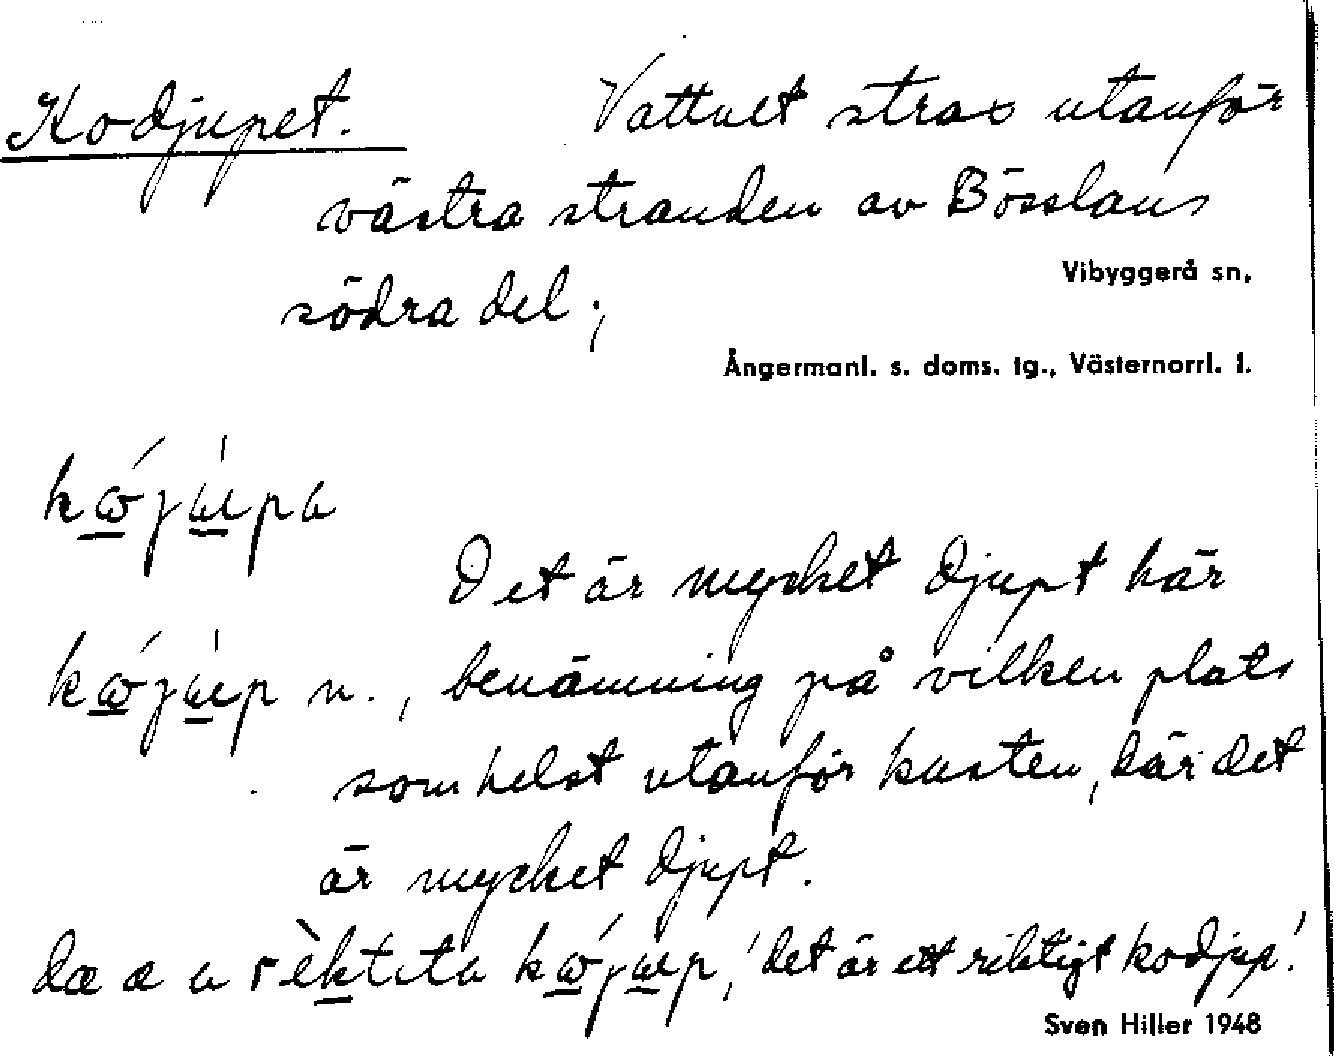 Kodjupet. Vattnet strax utanför
västra stranden av Bösslans
Vibyggerå sn,
södra del;
Ångermanl. s. doms. tg., Västernorrl. l.
Det är mycket djupt här
n., benämning på vilken plats
som helst utanför kusten, där det
är mycket djupt.
'det är ett riktigt kodjup'.
Sven Hiller 1948